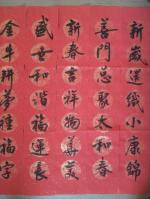 新歲織小康錦
善門总聚太和春
新春吉祥物美
盛世和諧福運長
金牛耕夢種福字